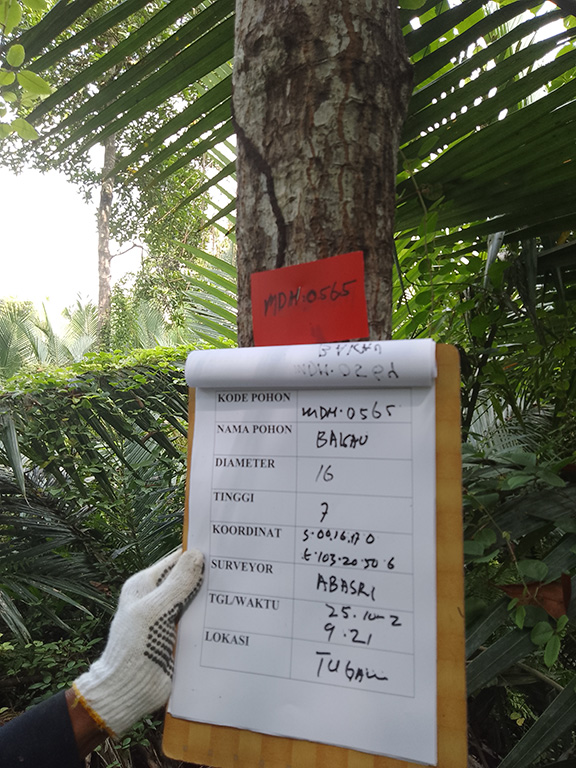 MDH.0565
KODE POHON MDH.0565
NAMA POHON BAKAU
DIAMETER 16
TINGGI 7
KOORDINAT S.00.16.17 0
E.103.20.50 6
SURVEYOR ABASRI
TGL/WAKTU 25.10-2
9.21
LOKASI